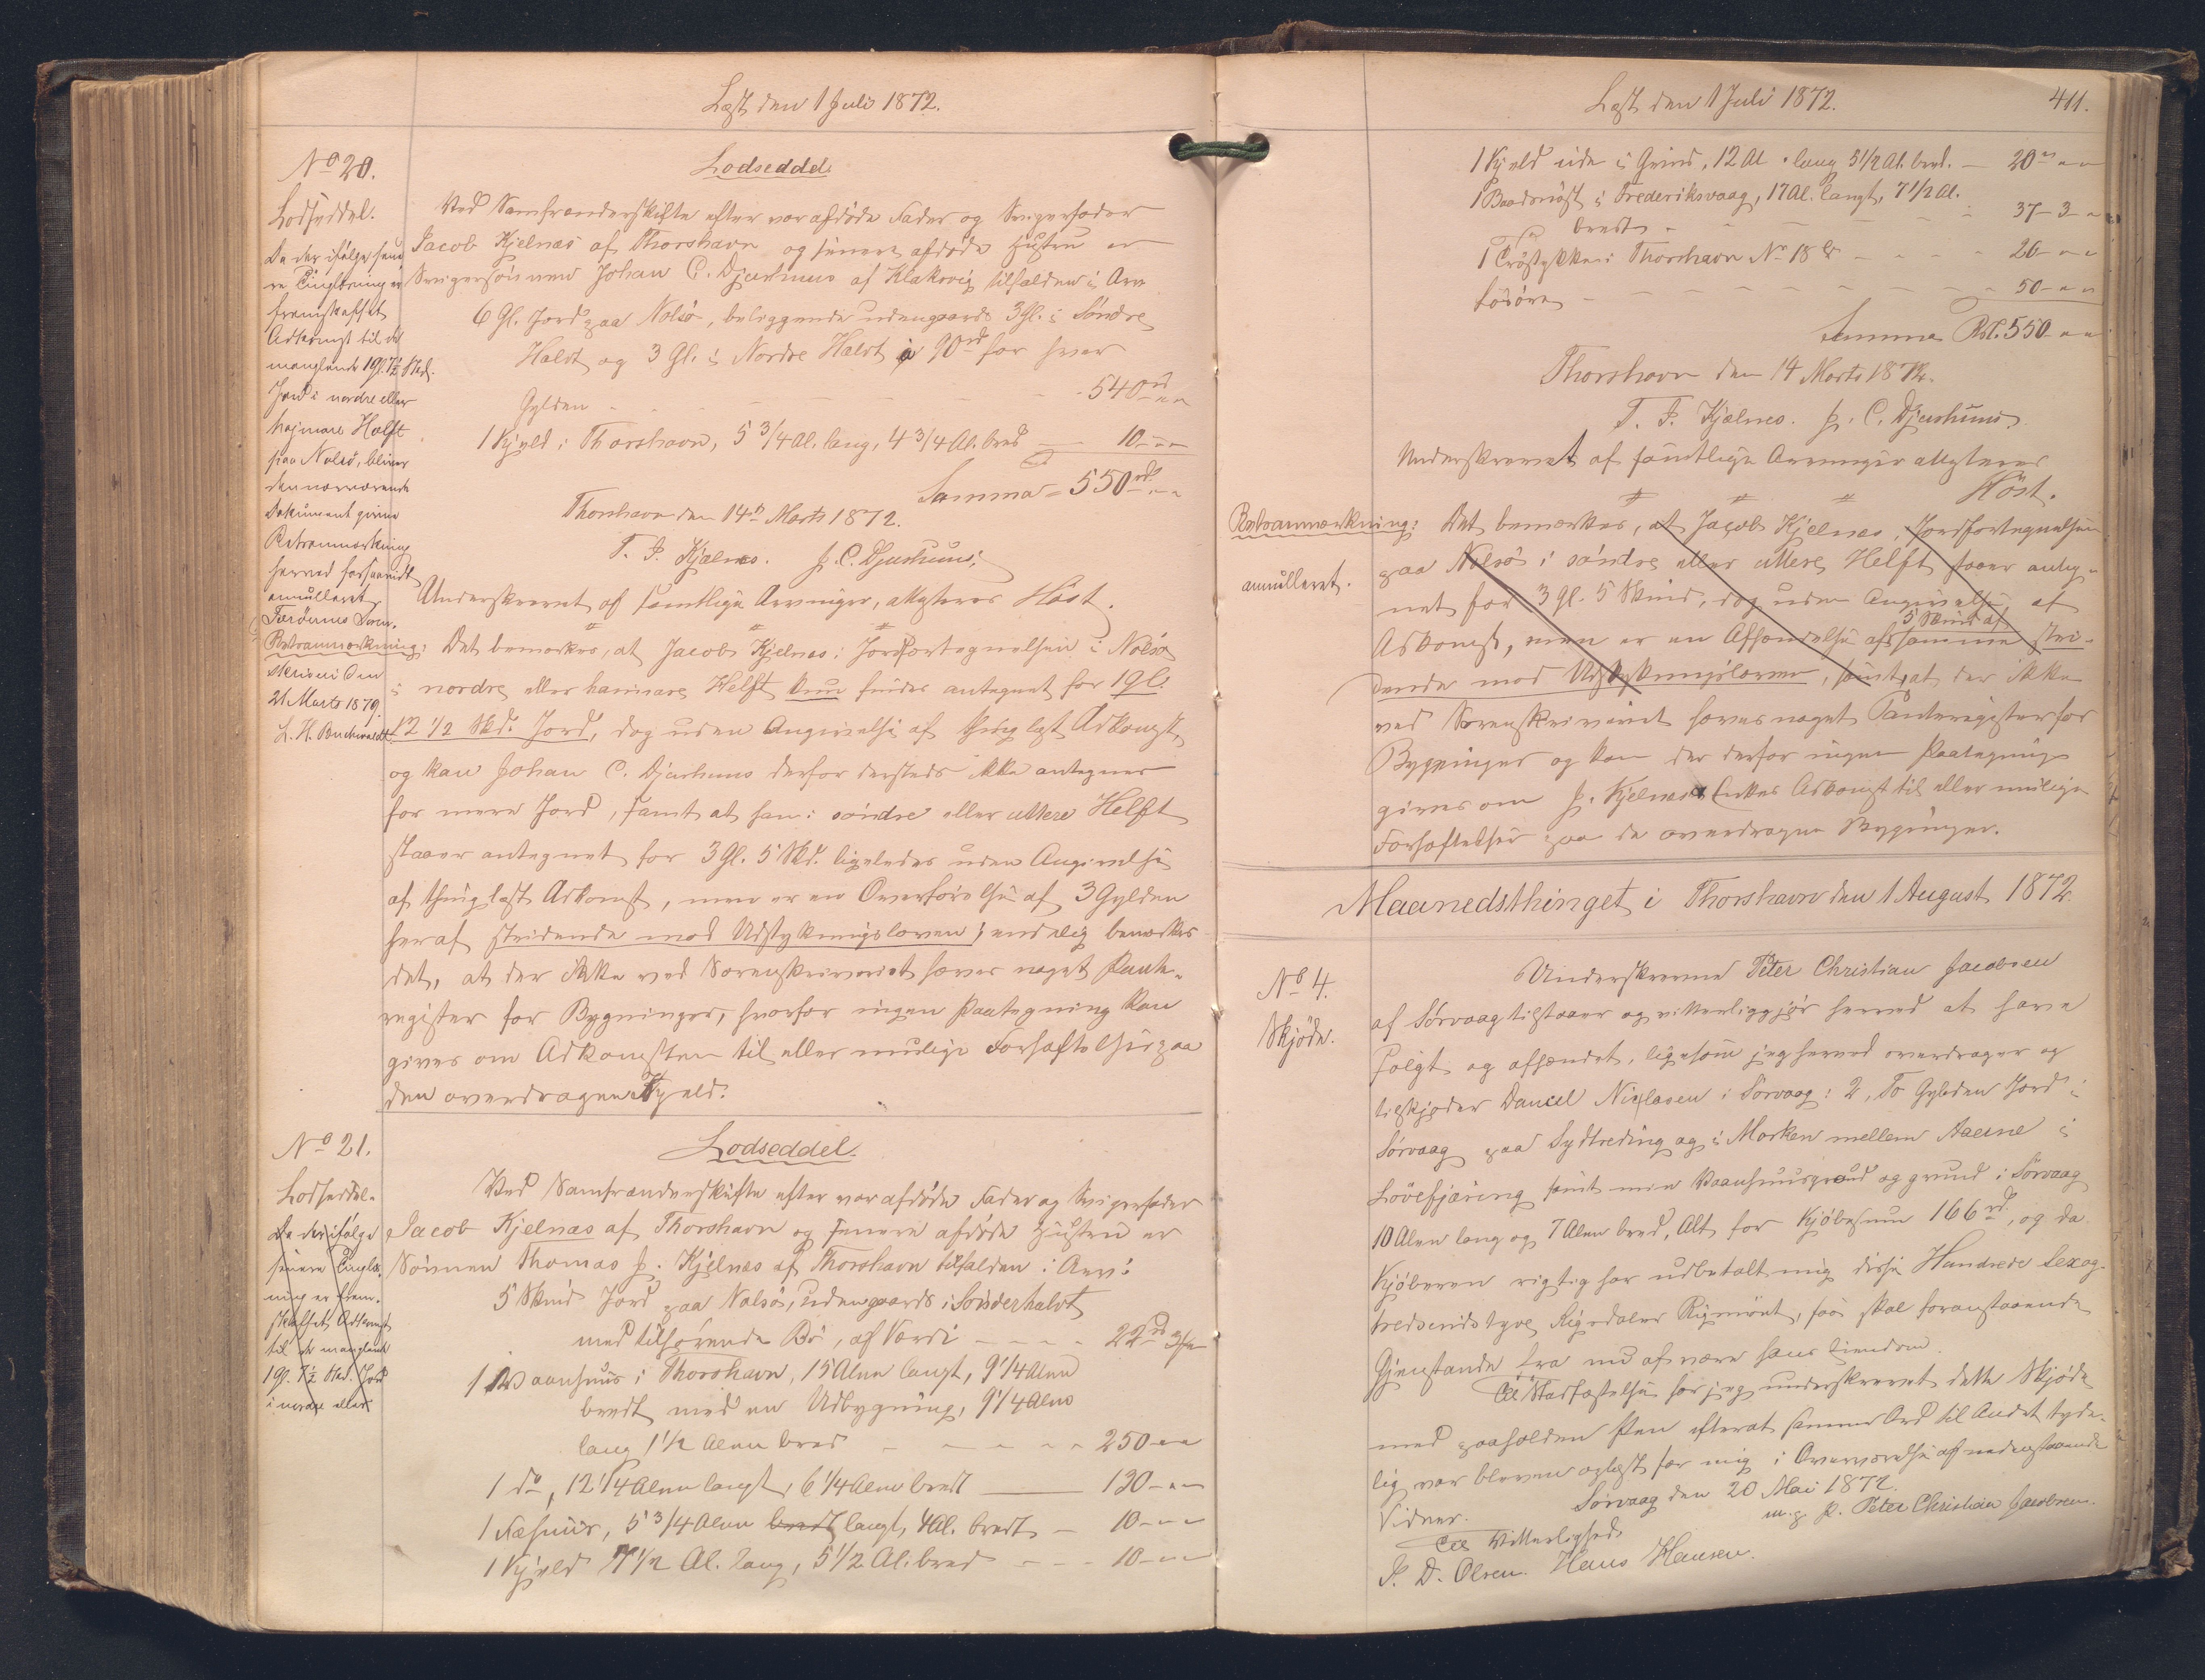 Læst den 1 Juli 1872.
No 20.
Lodseddel.
Da der ifølge sene
re Tinglæsning er
fremskaffet
Adkomst til de
manglende 1 Gl. 7½ Skd.
Jord i nordre eller
hejmare Halft
paa Nolsö, bliver
den nærværende
Dokument givne
Retsanmærkning
herved forsaavidt
annulleret.
Færöernes Soren-
skriveri den
21 Marts 1879.
L. H. Buchwaldt
Lodseddel
Ved Samfrændeskifte efter vor afdöde Fader og Svigerfader
Jacob Kjelnæs af Thorshavn og senere afdöde Hustru er
Svigersönnen Johan C. Djurhuus af Klaksvig tilfalden i Arv
6 Gl. Jord paa Nolsö, beliggende udengaards 3 Gl. i Söndre
Halvt og 3 Gl. i Nordre Halvt à 90 rd for hver
Gylden - - - - - 540 rd
1 Kjæld i Thorshavn, 5 3/4 Al. lang, 4 3/4 Al. bred - 10 - -
Summa = 550 rd - -
Thorshavn den 14n Marts 1872.
T. J. Kjælnes. J. C. Djurhuus.
Underskrevet af samtlige Arvinger, attesteres Höst.
Retsanmærkning: Det bemærkes, at Jacob Kjelnæs i Jordfortegnelsen i Nolsö
i nordre eller heimare Helft kun findes antegnet for 1 gl.
12 1/2 Skd. Jord, dog uden Angivelse af thinglæst Adkomst,
og kan Johan C. Djurhuus derfor dersteds ikke antegnes
for mere Jord, samt at han i söndre eller uttere Helft
staaer antegnet for 3 Gl. 5 Skd. ligeledes uden Angivelse
af thinglæst Adkomst, men er en Overförelse af 3 Gylden
heraf stridende mod Udstykningsloven; endelig bemærkes
det, at der ikke ved Sorenskriveriet haves noget Pante-
register for Bygninger, hvorfor ingen Paategning kan
gives om Adkomsten til eller mulige Forhæftelser paa
den overdragne Kjæld.
No 21.
Lodseddel.
Da der ifölge
senere Tinglæs-
ning er frem-
skaffet Adkomst
til de manglende
1 Gl. 7½ Skd. Jord
i nordre eller
Lodseddel.
Ved Samfrændeskifte efter vor afdöde Fader og Svigerfader
Jacob Kjelnæs af Thorshavn og senere afdöde Hustru er
Sönnen Thomas J. Kjelnæs af Thorshavn tilfalden i Arv:
5 Skind Jord paa Nolsö, udengaards i Sönderhalvt
med tilhörende Bö, af Værdi - - - - 22 rd 3 m
1 Vaanhuus i Thorshavn, 15 Alen langt, 9 1/4 Alen
bredt med en Udbygning, 9 1/4 Alen
lang 1 1/2 Alen bred - - - - 250 - -
1 do, 12 1/4 Alen langt, 6 1/4 Alen bredt - 120 - -
1 Fæhuus, 5 3/4 Alen bredt langt, 4 Al. bredt - 10 - -
1 Kjæld 7 1/2 Al. lang, 5 1/2 Al. bred - - - 10 - -
Læst den 1 Juli 1872.
411.
1 Kjæld ude i Grind, 12 Al. lang 5 1/2 Al. bred. - 20 - -
1 Baadenöst i Frederiksvaag, 17 Al. langt, 7 1/2 Al.
bredt - - - - 37 - 3 -
1 Tröstykke i Thorshavn No 18 b - - - 20 - -
Lösöre - - - - - - - 50 - -
Summa Rd. 550 - -
Thorshavn den 14 Marts 1872.
T. J. Kjælnes. J. C. Djurhuus.
Underskrevet af samtlige Arvinger attesteres
Höst.
Retsanmærkning: Det bemærkes, at Jacob Kjelnæs i Jordfortegnelsen
annulleret.
paa Nolsö i söndre eller uttere Helft staaer anteg-
net for 3 gl. 5 Skind, dog uden Angivelse af
Adkomst, men er en Afhændelse af 5 Skind af samme stri-
dende mod Udstykningsloven, samt, at der ikke
ved Sorenskriveriet haves noget Panteregister for
Bygninger og kan der derfor ingen Paategning
gives om J. Kjelnæs's Enkes Adkomst til eller mulige
Forhæftelser paa de overdragne Bygninger.
Maanedsthinget i Thorshavn den 1 August 1872.
No 4.
Skjöde.
Underskrevne Peter Christian Jacobsen
af Sörvaag tilstaaer og vitterliggjör herved at have
solgt og afhændet, ligesom jeg herved overdrager og
tilskjöder Daniel Niclasen i Sörvaag: 2, To Gylden Jord i
Sörvaag paa Sydtreding og i Marken mellem Aaerne i
Lövefjæring samt min Vaanhuusgrund og grund i Sörvaag
10 Alen lang og 7 Alen bred, Alt for Kjöbesum 166 rd, og da
Kjöberen rigtig har udbetalt mig disse Hundrede Sex og
tredsindstyve Rigsdaler Rigsmönt, saa skal foranstaaende
Gjenstande fra nu af være hans Eiendom.
Til Stadfæstelse har jeg underskrevet dette Skjöde
med paaholden Pen efterat samme Ord til Andet tyde-
lig var bleven oplæst for mig i Overværelse af nedenstaaende
Vidner. Sörvaag den 20 Mai 1872.
m. p. P. Peter Christian Jacobsen.
Til Vitterlighed
J. D. Olsen. Hans Hansen.